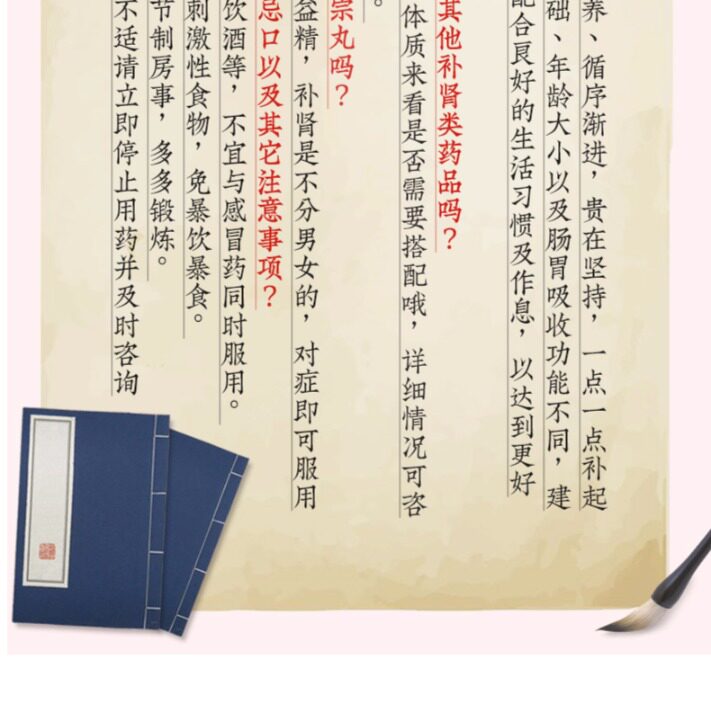 养、循序渐进，贵在坚持，一点一点补起
础、年龄大小以及肠胃吸收功能不同，建
配合良好的生活习惯及作息，以达到更好
其他补肾类药品吗？
体质来看是否需要搭配哦，详细情况可咨
。
宗丸吗？
益精，补肾是不分男女的，对症即可服用
忌口以及其它注意事项？
饮酒等，不宜与感冒药同时服用。
刺激性食物，免暴饮暴食。
节制房事，多多锻炼。
不适请立即停止用药并及时咨询